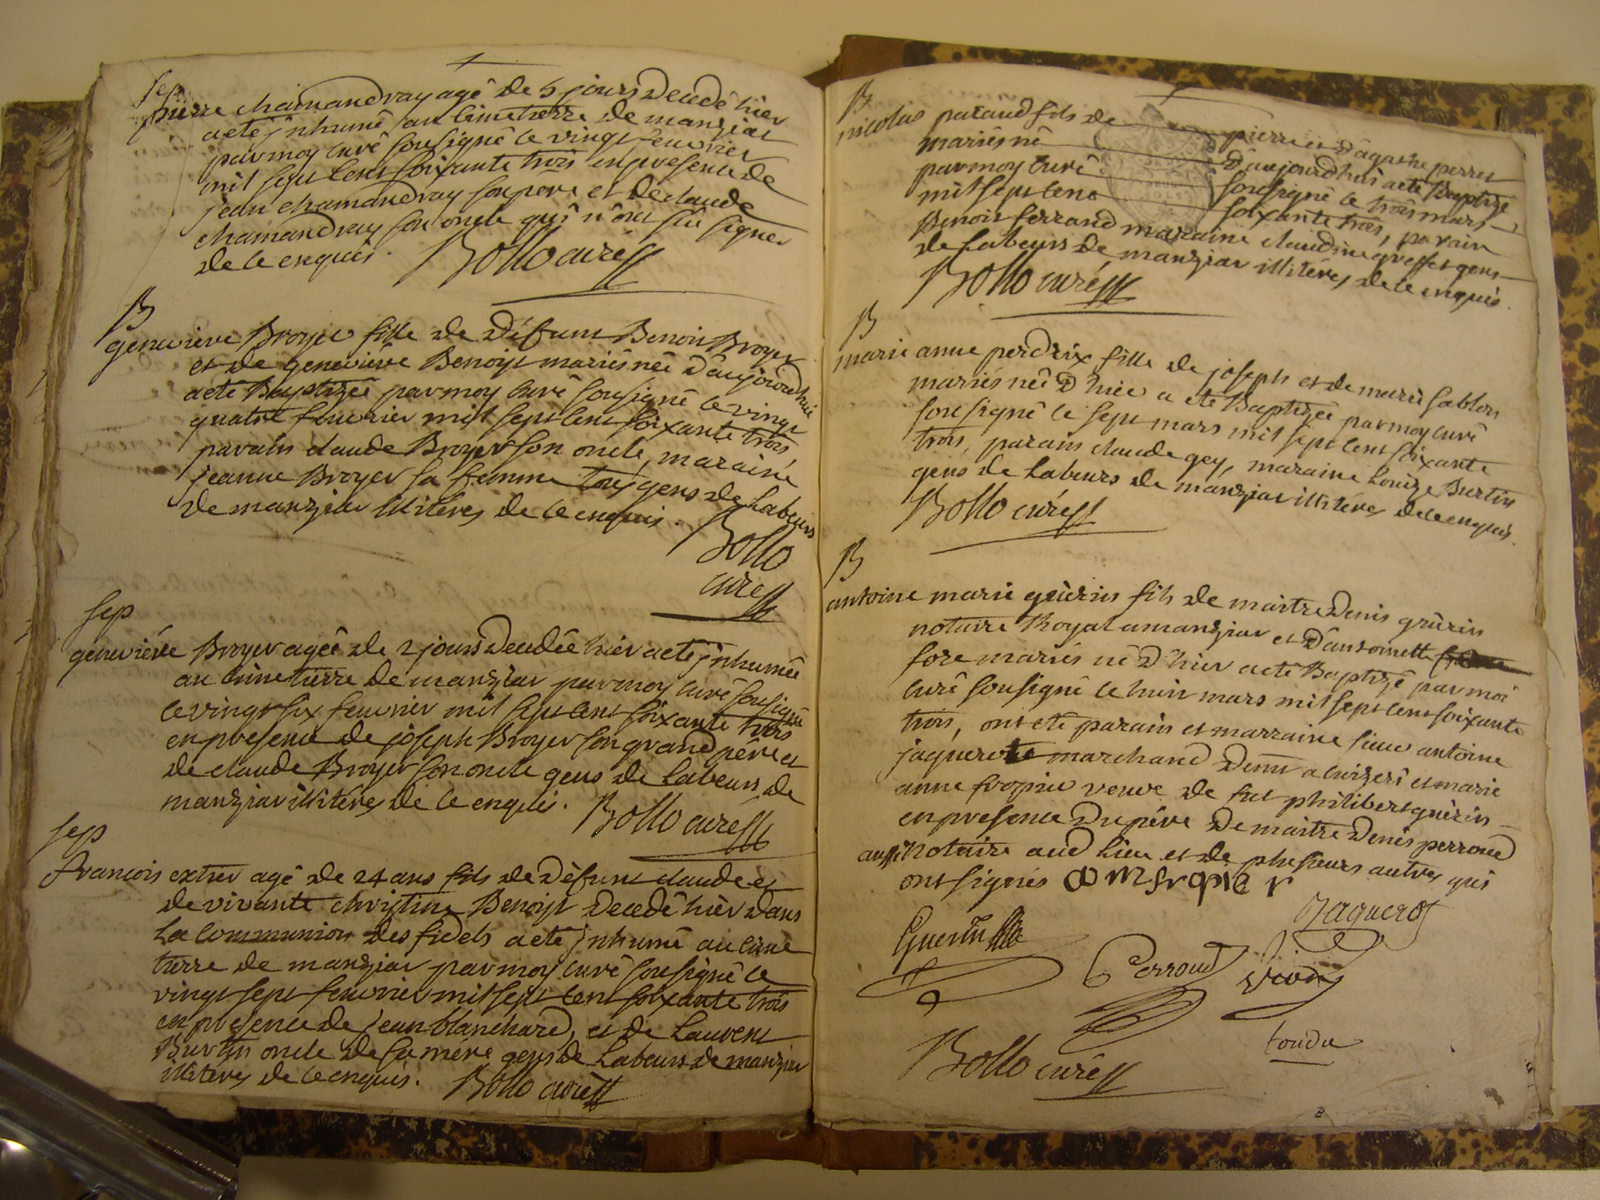 sep
pierre chamandray agé de 5 jours Decedé hier
a eté jnhumé au Cimetierre de manziat
par moy curé sousigné le vingt feuvrier
mil sept cent soixante trois en presence de
jean chamandray son pere et de claude
chamandray son oncle qui n'ont sçu signer
de ce enquis. Bollo curé
B
genevieve Broyer fille de Défunt Benoit Broyer
et de genevieve Benoist mariés née D'aujourdhui
a eté Baptizée par moy curé sousigné le vingt
quatre feuvrier mil sept cent soixante trois
parain claude Broyer son oncle, maraine
jeanne Broyer sa femme tous gens de Labeurs
de manziat illitéres de ce enquis.
Bollo
curé
sep
genevieve Broyer agée de 2 jours Decedée hier a eté jnhumée
au cimetierre de manziat par moy curé sousigné
le vingt six feuvrier mil sept cent soixante trois
en presence de joseph Broyer son grand pere et
de claude Broyer son oncle gens de Labeurs de
manziat illitéres de ce enquis. Bollo curé
sep
françois extier agé de 24 ans fils de Défunt claude et
de vivante christine Benoist Decedé hier Dans
La communion des fidels a eté jnhumé au cime
tierre de manziat par moy curé sousigné le
vingt sept feuvrier mil sept cent soixante trois
en presence de jean blanchard, et de Laurent
Burtin oncle de sa mére gens de Labeurs de manziat
illitéres de ce enquis. Bollo curé
B
nicolas pataud fils de pierre et D'agathe perret
mariés né D'aujourdhui a eté Baptizé
par moy curé sousigné le trois mars
mil sept cent soixante trois, parain
Benoit ferrand maraine claudine greffet gens
de Labeurs de manziat illitéres de ce enquis.
Bollo curé
B
marie anne perdrix fille de joseph et de marie sablon
mariés née D'hier a eté Baptizée par moy curé
sousigné le sept mars mil sept cent soixante
trois, parain claude gey, maraine Louize Burtin
gens de Labeurs de manziat illitéres de ce enquis.
Bollo curé
B
antoine marie guérin fils de maitre Denis guérin
notaire Royal a manziat et D'antoinette
fore mariés né D'hier a eté Baptizé par moi
curé sousigné le huit mars mil sept cent soixante
trois, ont eté parain et marraine sieur antoine
jaquerot marchand Demt a et marie
anne fropier veuve de fut philibert guérin
en presence Du pére De maitre Denis perroud
aussi notaire aud Lieu et de plusieurs autres qui
ont signés amfropier
Guerin Jaquerot
Perroud
Bollo curé